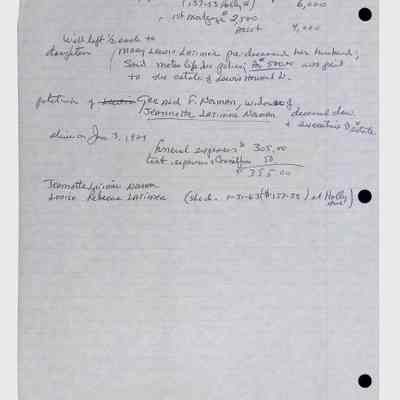 (137-53 Holly Av) 6,000
1st mortgage $2,500
4,000
Will left ½ each to
daughters Mary Lewis Latimer pre-deceased her husband;
Said metro life ins policy, $500.00 was paid
to the estate of Lewis Howard L.
petition of Gerald F. Norman, widower of
Jeannette Latimer Norman deceased dau
& executrix of estate
alive on Jan 3, 1929
funeral expenses $ 305.00
test. expenses 50
$ 355.00
Jeannette Latimer Norman
Louise Rebecca Latimer (she d. 1-31-63 (137-53) at Holly Ave)